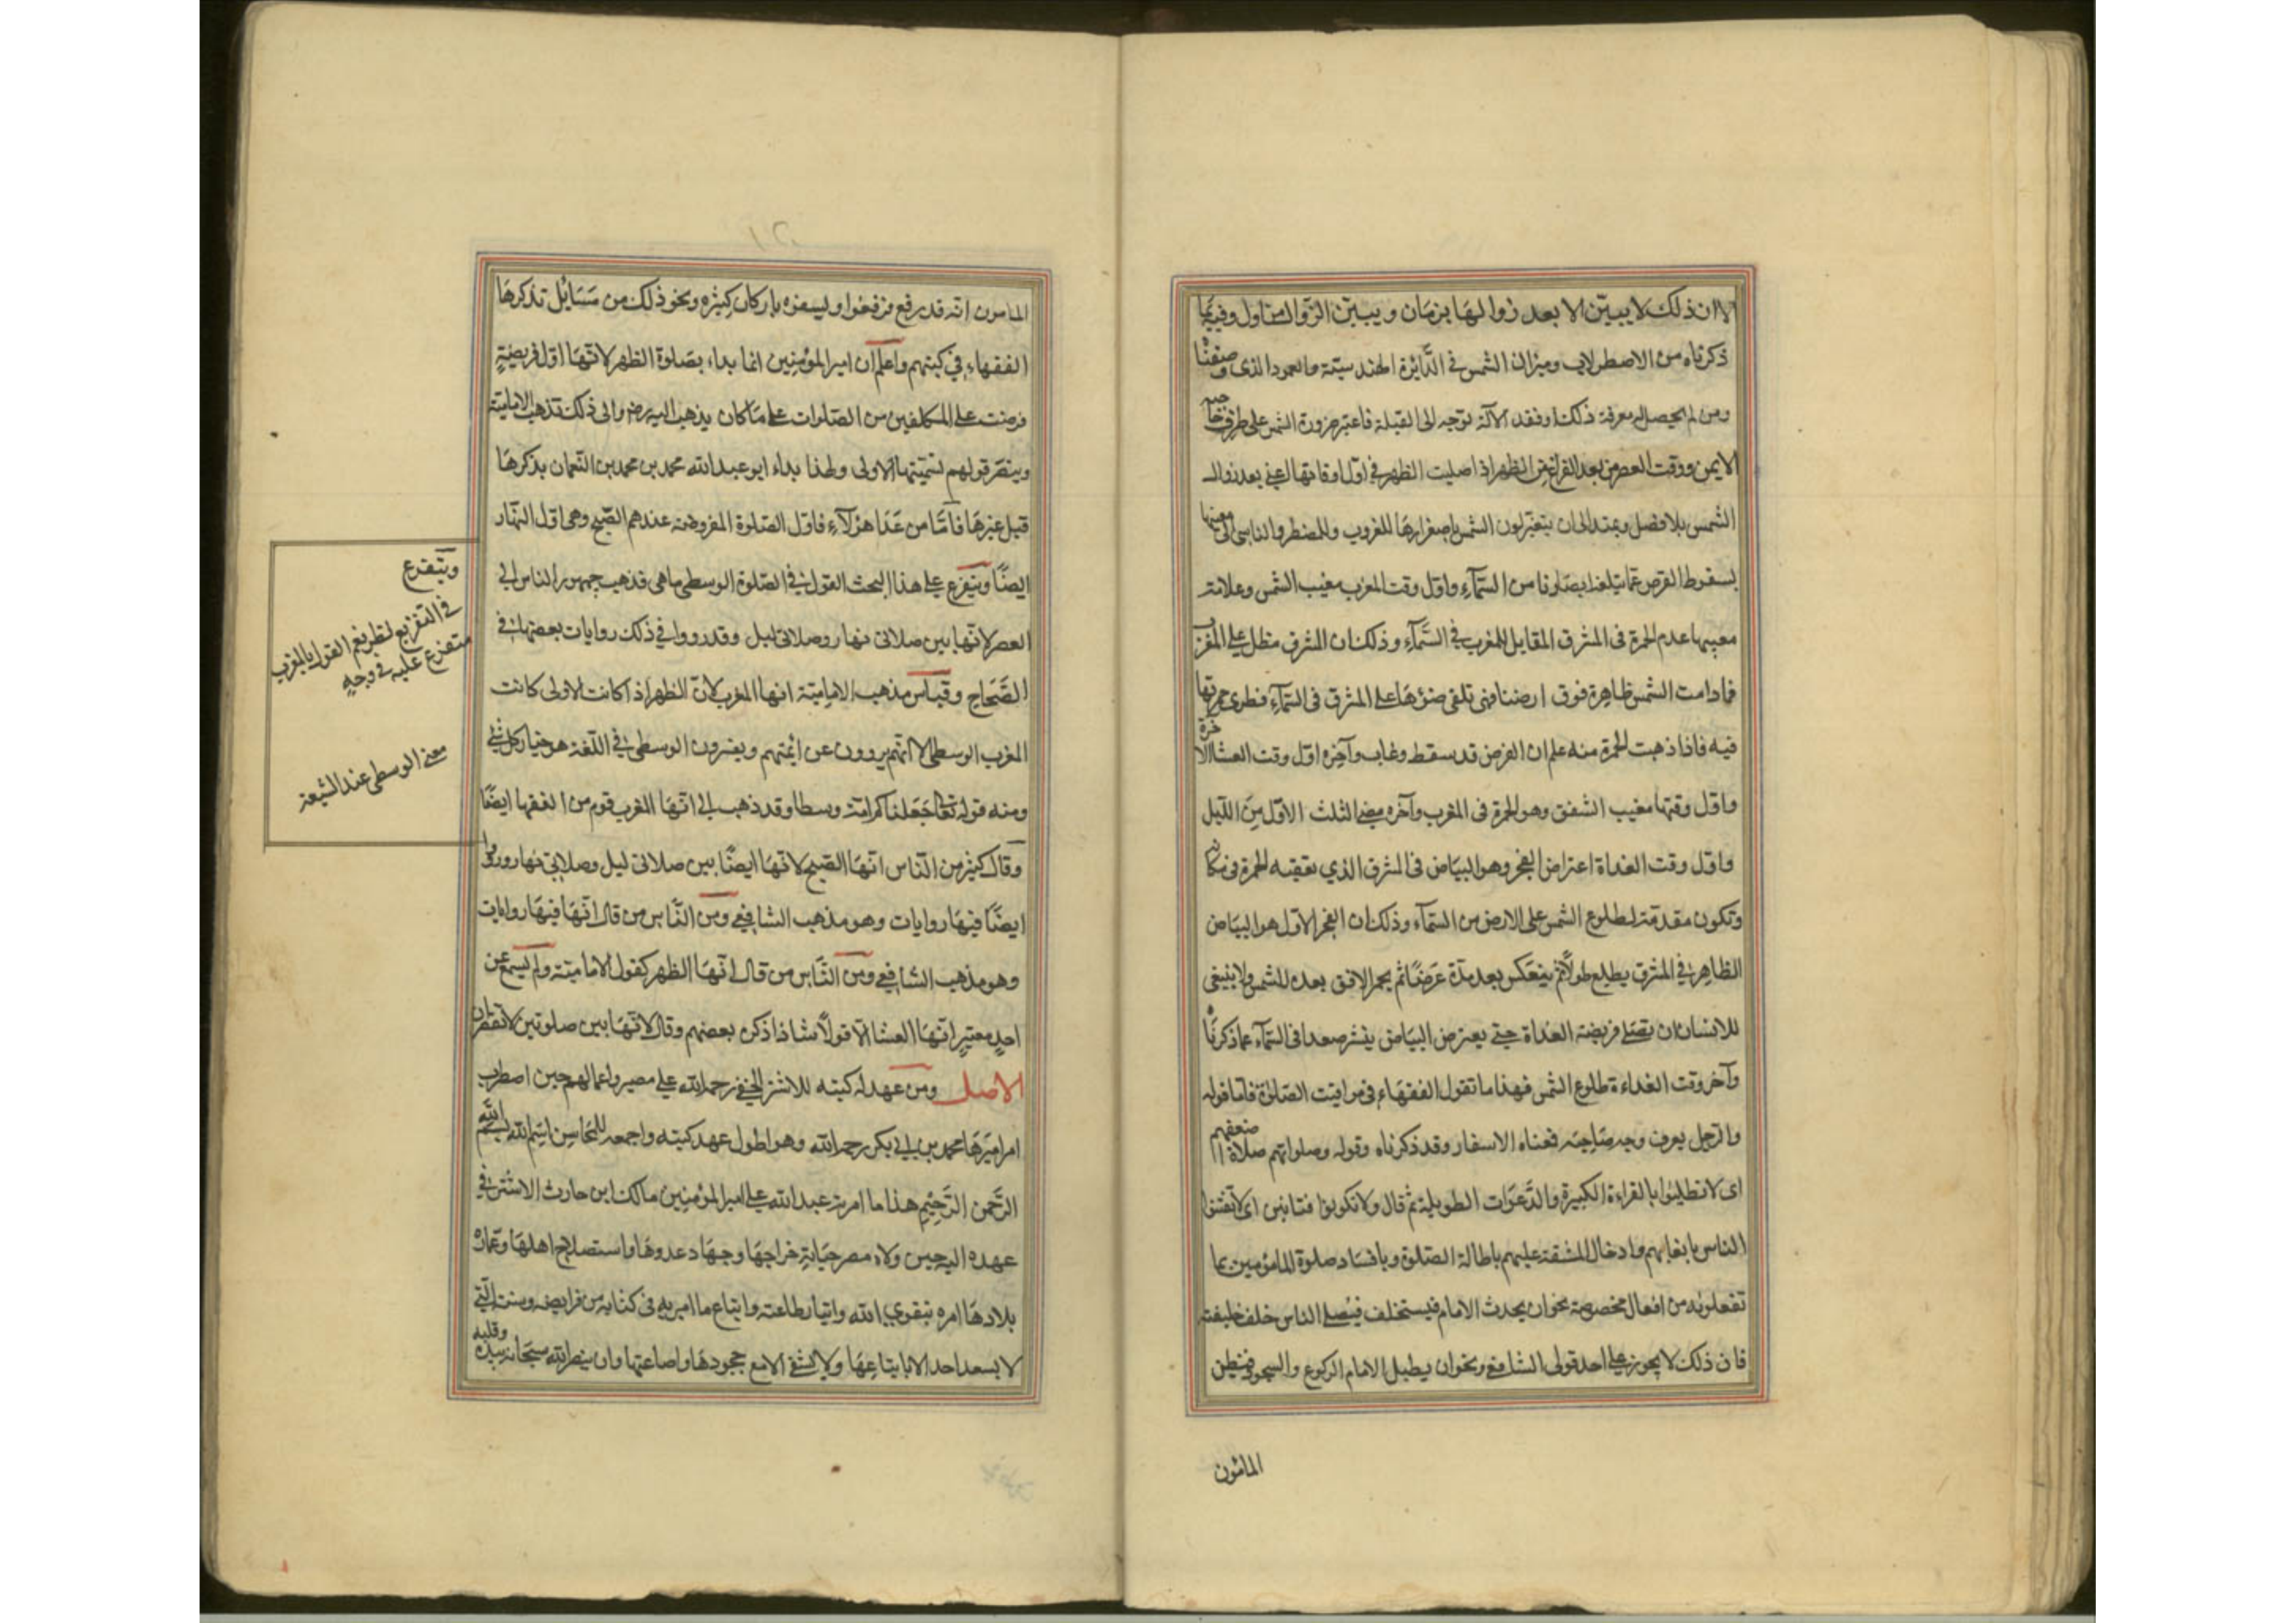 الا ان ذلك لا يبين الا بعد زوالها بزمان ويبين الزوال من اول وفيما
ذكرناه من الاصطرلاب وميزان الشمس في الدايرة الهندسيته والعمود الذي وصفنا
ومن لم يحصل له معرفة ذلك او فقد الآلة توجه الى القبلة فاعتبر ضرورة الشمس على طرف حاجبه
الايمن ووقت العصر من بعد الفراغ من الظهر اذا صليت الظهر في اول اوقاتها اعني بعد زوال
الشمس بلا فصل ويمتد الى ان يتغير لون الشمس باصفرارها للغروب وللمضطر والناسي الى مغيبها
بسقوط القرص عما تبلغه ابصارنا من السماء واول وقت المغرب مغيب الشمس وعلامته
مغيبها عدم الحمرة في المشرق المقابل للمغرب في السماء وذلك ان المشرق مطل على المغرب
فما دامت الشمس ظاهرة فوق ارضنا فهي تلقي ضوءها على المشرق في السماء فترى حمرتها
فيه فاذا ذهبت الحمرة منه علم ان القرص قد سقط وغاب وآخره اول وقت العشا الاخرة
واول وقتها مغيب الشفق وهو الحمرة في المغرب وآخره مضي الثلث الاول من الليل
واول وقت الغداة اعتراض الفجر وهو البياض في المشرق الذي يعقبه الحمرة في مكانه
وتكون مقدمة لطلوع الشمس على الارض من السماء وذلك ان الفجر الاول هو البياض
الظاهر في المشرق يطلع طولا ثم ينعكس بعد مدة عرضا ثم يحمر الافق بعده للشمس ولا ينبغي
للانسان ان يصلي فريضة الغداة حتى يعترض البياض ينشر صعدا في السماء كما ذكرنا
وآخر وقت الغداءة طلوع الشمس فهذا ما تقول الفقهاء في مواقيت الصلوة فاما قوله
والرجل يعرف وجه صاحبه فمعناه الاسفار وقد ذكرناه وقوله وصلوا بهم صلاة اضعفهم
اى لا تطيلوا بالقراءة الكبيرة والدعوات الطويلة ثم قال ولا تكونوا فتانين اى لا تفتنوا
الناس باتعابهم وادخال المشقة عليهم باطالة الصلوة وبافساد صلوة المامومين بما
تفعلونه من افعال مخصوصة نحو ان يحدث الامام فيستخلف فيصلي الناس خلف خليفته
فان ذلك لا يجوز على احد قولي الشافعي ونحو ان يطيل الامام الركوع والسجود فيظن
المامون
المامون انه قد رفع فرفعوا وليسفوه باركان كثيره ونحو ذلك من مسايل تذكرها
الفقهاء في كتبهم واعلم ان امير المؤمنين انما بداء بصلوة الظهر لانها اول فريضة
فرضت على المكلفين من الصلوات على ما كان يذهب اليه رض والى ذلك تذهب الامامية
وينصر قولهم تسميتها الاولى ولهذا بداء ابو عبد الله محمد بن محمد بن النعمان بذكرها
قبل غيرها فاما من عدا هؤلاء فاول الصلوة المفروضه عندهم الصبح وهى اول النهار
ايضا ويتفرع على هذا البحث القول في الصلوة الوسطى ما هى فذهب جمهور الناس الى
العصر لانها بين صلاتى نهار وصلاتى ليل وقد رووا في ذلك روايات بعضها في
الصحاح وقياس مذهب الامامية انها المغرب لان الظهر اذا كانت الاولى كانت
المغرب الوسطى الا انهم يروون عن ائمتهم ويفسرون الوسطى في اللغة هو خيار كل شي
ومنه قوله تعالى جعلناكم امة وسطا وقد ذهب الى انها المغرب قوم من الفقها ايضا
وقال كثير من الناس انها الصبح لانها ايضا بين صلاتى ليل وصلاتى نهار ورووا
ايضا فيها روايات وهو مذهب الشافعي ومن الناس من قال انها فيها روايات
وهو مذهب الشافعي ومن الناس من قال انها الظهر كقول الامامية ولم يسمع عن
احد معتبر انها العشا الا قولا شاذا ذكره بعضهم وقال لانها بين صلوتين لا تقصران
الاصل ومن عهد له كتبه للاشتر النخعي رحمه الله على مصر واعمالها حين اضطرب
امر اميرها محمد بن ابي بكر رحمه الله وهو اطول عهد كتبه واجمعه للمحاسن بسم الله
الرحمن الرحيم هذا ما امر به عبد الله على امير المؤمنين مالك ابن حارث الاشتر في
عهده اليه حين ولاه مصر جباية خراجها وجهاد عدوها واستصلاح اهلها وعمارة
بلادها امره بتقوى الله وايثار طاعته واتباع ما امر به في كتابه من فرايضه وسننه التي
لا يسعد احد الا باتباعها ولا يشقى الا مع جحودها واضاعتها وان ينصر الله سبحانه بيده وقلبه
ويتفرع
في التفريع لطريقهم القول بالمغرب
متفرع عليه في وجه
معنى الوسطى عند الشيعة